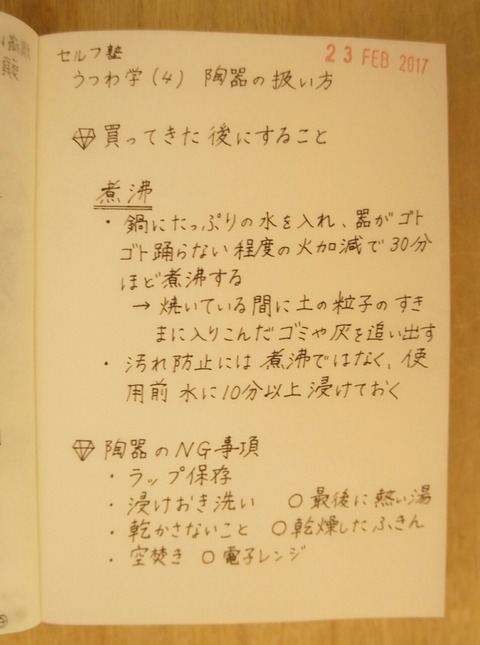 セルフ塾
23 FEB 2017
うつわ学(4) 陶器の扱い方
買ってきた後にすること
煮沸
・鍋にたっぷりの水を入れ、器がゴト
ゴト踊らない程度の火加減で30分
ほど煮沸する
→ 焼いている間に土の粒子のすき
まに入りこんだゴミや灰を追い出す
・汚れ防止には煮沸ではなく、使
用前 水に10分以上浸けておく
陶器のNG事項
・ラップ保存
・浸けおき洗い ○最後に熱い湯
・乾かさないこと ○乾燥したふきん
・空焚き ○電子レンジ